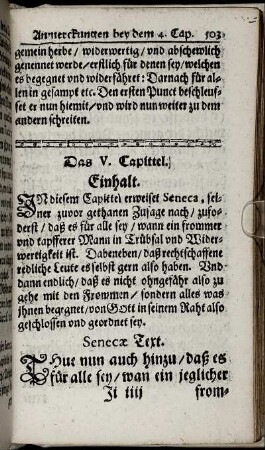 Annterckuncten bey dem 4. Cap. 503
gemein herde / widerwertig / vnd abschewlich
genennet werde / erstlich für denen sey / welchen
es begegnet vnd widerfähret: Darnach für al-
len in gesampt etc. Den ersten Punct beschleus-
set er nun hiemit / vnd wird nun weiter zu dem
andern schreiten.
Das V. Capittel.
Einhalt.
IN diesem Capittel erweiset Seneca, sei-
ner zuvor gethanen Zusage nach / zufo-
derst / daß es für alle sey / wann ein frommer
vnd tapfferer Mann in Trübsal vnd Wider-
wertigkeit ist. Dabeneben / daß rechtschaffene
redliche Leute es selbst gern also haben. Vnd
dann endlich / daß es nicht ohngefähr also zu
gehe mit den Frommen / sondern alles was
ihnen begegnet / von Gott in seinem Raht also
geschlossen vnd geordnet sey.
Senecæ Text.
THue nun auch hinzu / daß es
für alle sey / wan ein jeglicher
Ji iiij from-